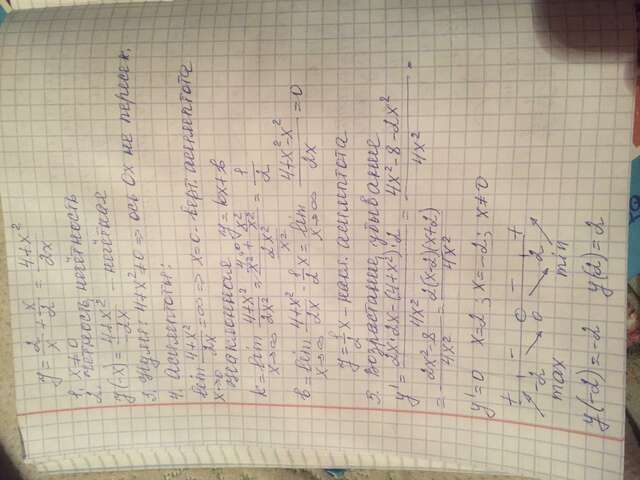 y = 2/x + x/2 = (4+x²)/2x
1. x≠0
2. чётность, нечётность
y(-x) = (4+x²)/-2x - нечётная
3. Нули: 4+x²≠0 => ось Ox не пересек.
4. Асимптоты:
lim x→0 (4+x²)/2x = ∞ => x=0 - верт. асимптота
Наклонная y = kx+b
k = lim x→∞ (4+x²)/2x² = (4/x² + x²/x²)/(2x²/x²) = 1/2
b = lim x→∞ (4+x²)/2x - 1/2 x = lim x→∞ (4+x²-x²)/2x = 0
y = 1/2 x - накл. асимптота
5. Возрастание, убывание
y' = (2x·2x-(4+x²)·2)/4x² = (4x²-8-2x²)/4x² =
= (2x²-8)/4x² = 2(x-2)(x+2)/4x²
y'=0 x=2; x=-2; x≠0
+ - - +
-2 0 2
max min
y(-2)=-2 y(2)=2